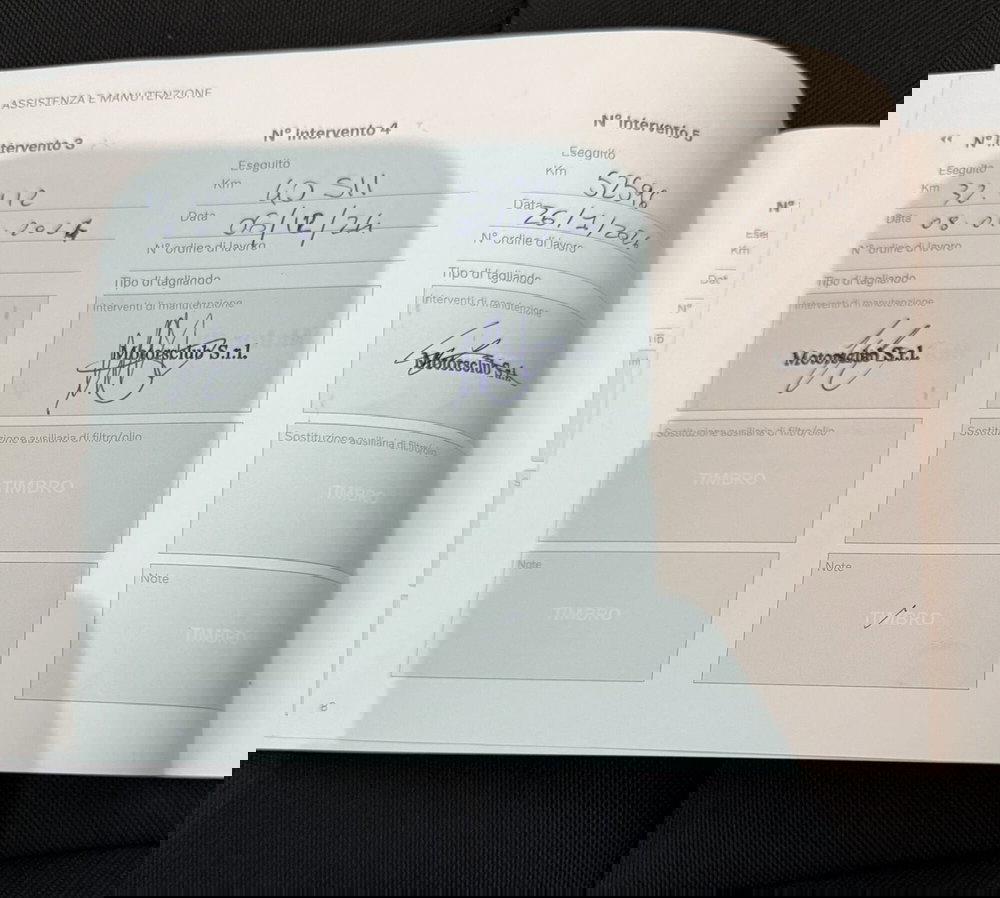 ASSISTENZA E MANUTENZIONE
N° Intervento 3
N° Intervento 4
Eseguito
Km 40 511
Data 06/12/24
N° ordine di lavoro
Tipo di tagliando
Interventi di manutenzione
Motorsclub S.r.l.
Sostituzione ausiliaria di filtro/olio
TIMBRO
Note
TIMBRO
N° Intervento 5
Eseguito
Km
Data
N° ordine di lavoro
Tipo di tagliando
Interventi di manutenzione
Motorsclub S.r.l.
Sostituzione ausiliaria di filtro/olio
TIMBRO
Note
TIMBRO
Eseguito
Km
Data
N° ordine di lavoro
Tipo di tagliando
Interventi di manutenzione
Motorsclub S.r.l.
Sostituzione ausiliaria di filtro/olio
TIMBRO
Note
TIMBRO
8
N°
Km
N°